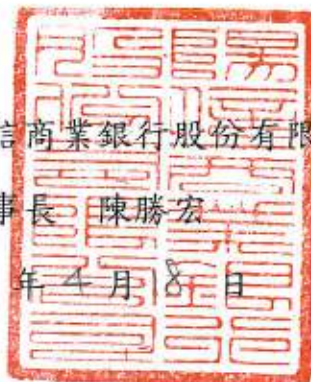 信商業銀行股份有限
事長 陳勝宏
年 4 月 8 日